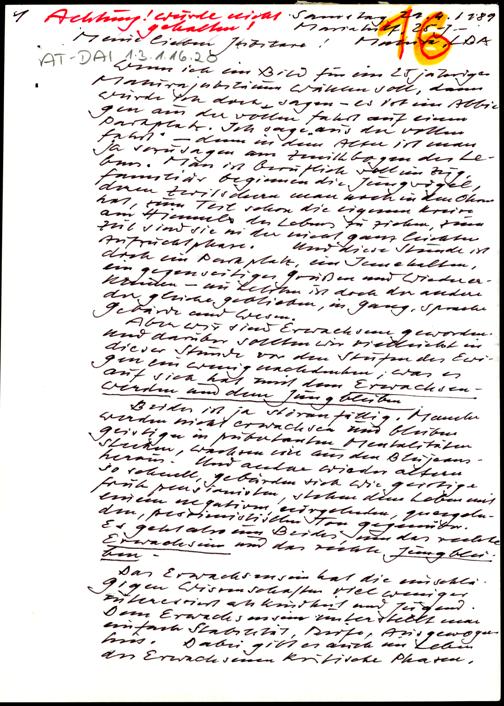 Achtung! würde nicht gehalten!
Samstag 1989
Meine lieben Jubilare!
16
AT-DAI 1.3.1.16.28
Wenn ich ein Bild für ein 25jähriges
Maturajubiläum wählen soll, dann
würde ich doch sagen – es ist ein Abbie-
gen aus der vollen Fahrt auf einen
Parkplatz. Ich sage aus der vollen
Fahrt – denn in dem Alter ist man
ja sozusagen am Zenitbogen des Le-
bens. Man ist beruflich voll im Zug,
familiär beginnen die Jungvögel,
deren Zwitschern man noch in den Ohren
hat, zum Teil schon die eigenen Kreise
am Himmel des Lebens zu ziehen, zum
Teil sind sie in der nicht ganz leichten
Aufzuchtphase. Und diese Stunde ist
doch ein Parkplatz, ein Innehalten,
ein gegenseitiges Grüßen und Wiederer-
kennen – im Letzten ist doch der andere
der gleiche geblieben, in Gang, Sprache
Gebärde und Wesen.
Aber wir sind Erwachsene geworden
und darüber sollten wir vielleicht in
dieser Stunde vor den Stufen des Ewi-
gen ein wenig nachdenken, was es
auf sich hat mit dem Erwachsen-
werden und dem Jungbleiben
Beides ist ja störanfällig. Manche
werden nicht erwachsen und bleiben
geistig in pubertanten Mentalitäten
stecken, wachsen nie aus den Bluejeans
heraus. Und andere wieder altern
so schnell, gebärden sich wie geistige
Frühpensionisten, stehen dem Leben mit
einem negativen, nörgelnden, quengeln-
den, pessimistischen Ton gegenüber.
Es geht also um Beides, um das rechte
Erwachsensein und das rechte Jungblei-
ben –
Das Erwachsensein hat die einschlä-
gigen Wissenschaften viel weniger
interessiert als Kindheit und Jugend.
Dem Erwachsensein unterstellt man
einfach Stabilität, Reife, Ausgewogen-
heit. Dabei gibt es auch im Leben
des Erwachsenen kritische Phasen,